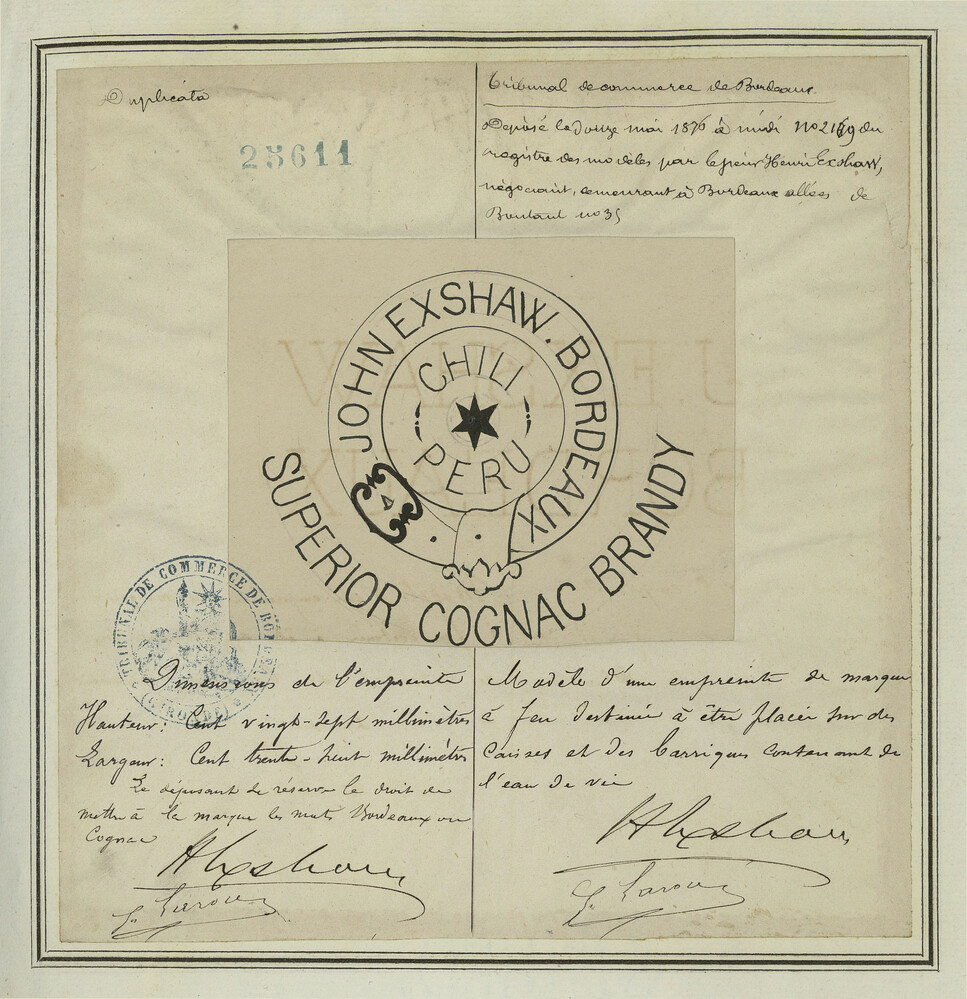 Duplicata
25611
Tribunal de commerce de Bordeaux.
Déposé le Douze mai 1876 à midi No 2169 du
registre des modèles par le sieur Henri Exshaw,
négociant, demeurant à Bordeaux allées de
Boutaut no 35
JOHN EXSHAW. BORDEAUX
CHILI
PERU
SUPERIOR COGNAC BRANDY
J. EXSHAW
BORDEAUX
TRIBUNAL DE COMMERCE DE BORDEAUX
(GIRONDE)
Dimensions de l'empreinte
Hauteur: Cent vingt-sept millimètres
Largeur: Cent trente-huit millimètres
Le déposant se réserve le droit de
mettre à la marque les mots Bordeaux ou
Cognac
HExshaw
Modèle d'une empreinte de marque
à feu destinée à être placée sur des
caisses et des barriques contenant de
l'eau de vie
HExshaw